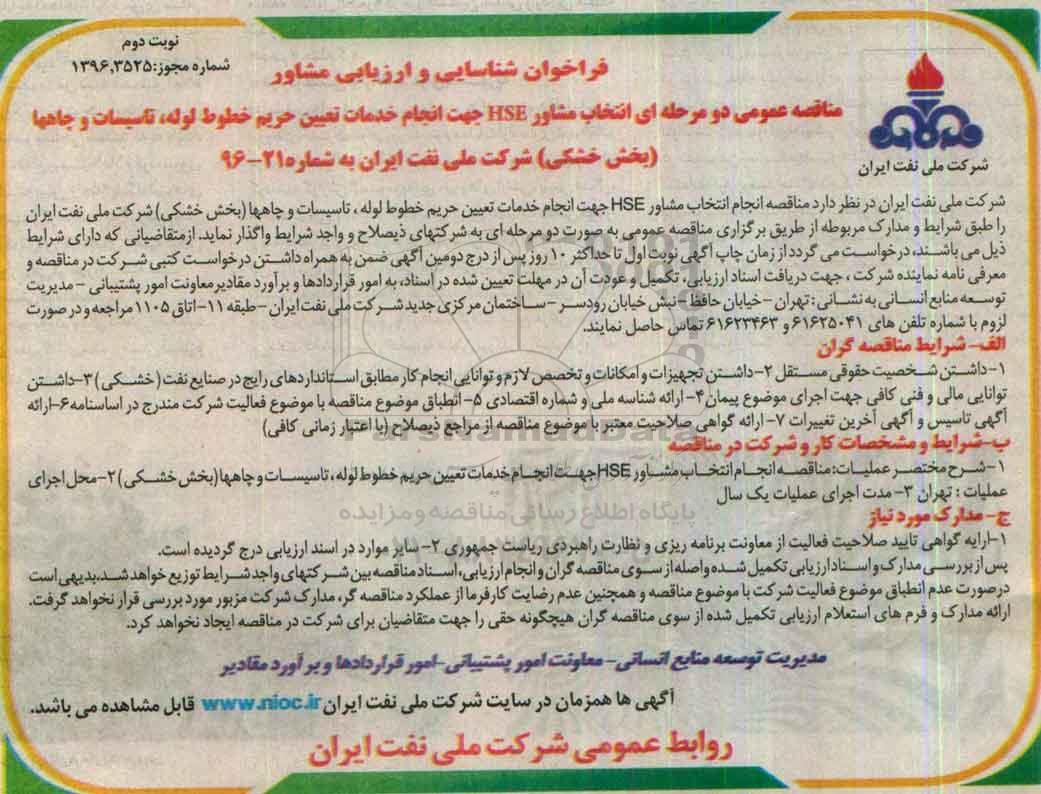 نوبت دوم
شماره مجوز:۱۳۹۶,۳۵۲۵
شرکت ملی نفت ایران
فراخوان شناسایی و ارزیابی مشاور
مناقصه عمومی دو مرحله ای انتخاب مشاور HSE جهت انجام خدمات تعیین حریم خطوط لوله، تاسیسات و چاهها
(بخش خشکی) شرکت ملی نفت ایران به شماره۲۱-۹۶
شرکت ملی نفت ایران در نظر دارد مناقصه انجام انتخاب مشاور HSE جهت انجام خدمات تعیین حریم خطوط لوله ، تاسیسات و چاهها (بخش خشکی) شرکت ملی نفت ایران
را طبق شرایط و مدارک مربوطه از طریق برگزاری مناقصه عمومی به صورت دو مرحله ای به شرکتهای ذیصلاح و واجد شرایط واگذار نماید. ازمتقاضیانی که دارای شرایط
ذیل می باشند، درخواست می گردد از زمان چاپ آگهی نوبت اول تا حداکثر ۱۰ روز پس از درج دومین آگهی ضمن به همراه داشتن درخواست کتبی شرکت در مناقصه و
معرفی نامه نماینده شرکت ، جهت دریافت اسناد ارزیابی، تکمیل و عودت آن در مهلت تعیین شده در اسناد، به امور قراردادها و برآورد مقادیر معاونت امور پشتیبانی - مدیریت
توسعه منابع انسانی به نشانی : تهران - خیابان حافظ - نبش خیابان رودسر - ساختمان مرکزی جدید شرکت ملی نفت ایران - طبقه ۱۱- اتاق ۱۱۰۵ مراجعه و در صورت
لزوم با شماره تلفن های ۶۱۶۲۵۰۴۱ و ۶۱۶۲۳۴۶۳ تماس حاصل نمایند.
الف- شرایط مناقصه گران
۱-داشتن شخصیت حقوقی مستقل ۲-داشتن تجهیزات و امکانات و تخصص لازم و توانایی انجام کار مطابق استانداردهای رایج در صنایع نفت (خشکی) ۳-داشتن
توانایی مالی و فنی کافی جهت اجرای موضوع پیمان ۴- ارائه شناسه ملی و شماره اقتصادی ۵- انطباق موضوع مناقصه با موضوع فعالیت شرکت مندرج در اساسنامه ۶-ارائه
آگهی تاسیس و آگهی آخرین تغییرات ۷- ارائه گواهی صلاحیت معتبر با موضوع مناقصه از مراجع ذیصلاح (با اعتبار زمانی کافی)
ب-شرایط و مشخصات کار و شرکت در مناقصه
۱-شرح مختصر عملیات: مناقصه انجام انتخاب مشاور HSE جهت انجام خدمات تعیین حریم خطوط لوله ، تاسیسات و چاهها (بخش خشکی) ۲-محل اجرای
عملیات : تهران ۳- مدت اجرای عملیات یک سال
پایگاه اطلاع رسانی مناقصه و مزایده
ج- مدارک مورد نیاز
۱-ارایه گواهی تایید صلاحیت فعالیت از معاونت برنامه ریزی و نظارت راهبردی ریاست جمهوری ۲- سایر موارد در اسند ارزیابی درج گردیده است.
پس از بررسی مدارک و اسناد ارزیابی تکمیل شده واصله از سوی مناقصه گران و انجام ارزیابی، اسناد مناقصه بین شرکتهای واجد شرایط توزیع خواهد شد، بدیهی است
درصورت عدم انطباق موضوع فعالیت شرکت با موضوع مناقصه و همچنین عدم رضایت کارفرما از عملکرد مناقصه گر، مدارک شرکت مزبور مورد بررسی قرار نخواهد گرفت.
ارائه مدارک و فرم های استعلام ارزیابی تکمیل شده از سوی مناقصه گران هیچگونه حقی را جهت متقاضیان برای شرکت در مناقصه ایجاد نخواهد کرد.
مدیریت توسعه منابع انسانی- معاونت امور پشتیبانی-امور قراردادها و برآورد مقادیر
آگهی ها همزمان در سایت شرکت ملی نفت ایران www.nioc.ir قابل مشاهده می باشد.
روابط عمومی شرکت ملی نفت ایران